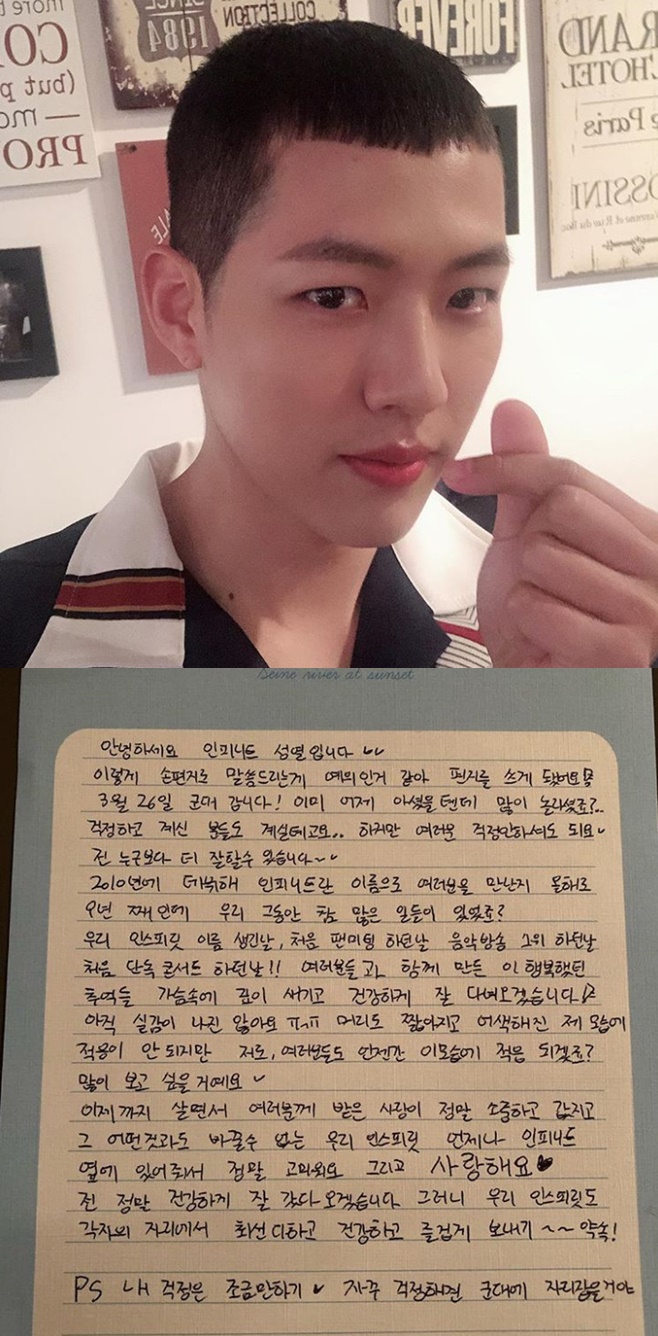 more t
CO
(but p
— mo
PRO
SINCE
1984
COLLECTION
FOREVER
RAND
HOTEL
e Paris
OSSINI
ALE
Seine river at sunset
안녕하세요 인피니트 성열입니다 ᴗᴗ
이렇게 손편지로 말씀드리는게 예의인거 같아 편지를 쓰게 됐어요
3월 26일 군대 갑니다! 이미 어제 아셨을텐데 많이 놀라셨죠?..
걱정하고 계신 분들도 계실테고요.. 하지만 여러분 걱정안하셔도 되요
전 누구보다 더 잘할수 있습니다~
2010년에 데뷔해 인피니트란 이름으로 여러분을 만난지 올해로
9년 째인데 우리 그동안 참 많은 일들이 있었죠?
우리 인스피릿 이름 생긴날, 처음 팬미팅 하던날 음악방송 1위 하던날
처음 단독 콘서트 하던날!! 여러분들과 함께 만든 이 행복했던
추억들 가슴속에 깊이 새기고 건강하게 잘 다녀오겠습니다
아직 실감이 나진 않아요 ㅠㅠ 머리도 짧아지고 어색해진 제 모습에
적응이 안 되지만 저도, 여러분들도 언젠간 이모습에 적응 되겠죠?
많이 보고 싶을거예요
이제까지 살면서 여러분께 받은 사랑이 정말 소중하고 값지고
그 어떤것과도 바꿀수 없는 우리 인스피릿 언제나 인피니트
옆에 있어줘서 정말 고마워요 그리고 사랑해요♥
전 정말 건강하게 잘 갔다오겠습니다 그러니 우리 인스피릿도
각자의 자리에서 최선 다하고 건강하고 즐겁게 보내기 ~~ 약속!
PS 내 걱정은 조금만하기 자꾸 걱정하면 군대에 자리잡을거야